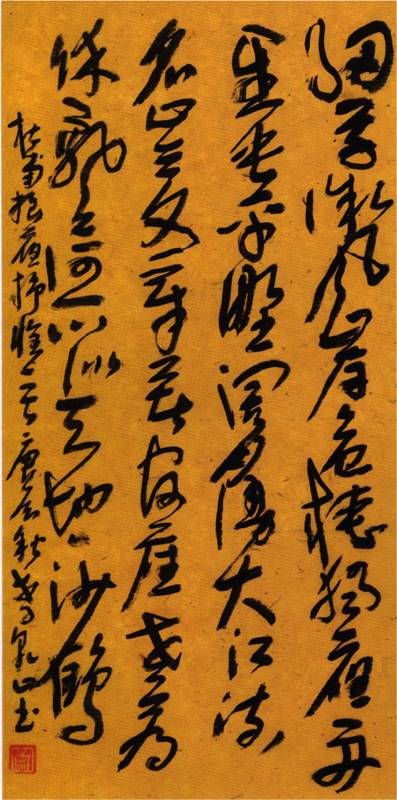 細草微風岸危樯獨夜舟
星垂平野闊月湧大江流
名豈文章著官應老病
休飄飄何所似天地一沙鷗
杜甫旅夜抒懷一首庚辰秋 泉山书